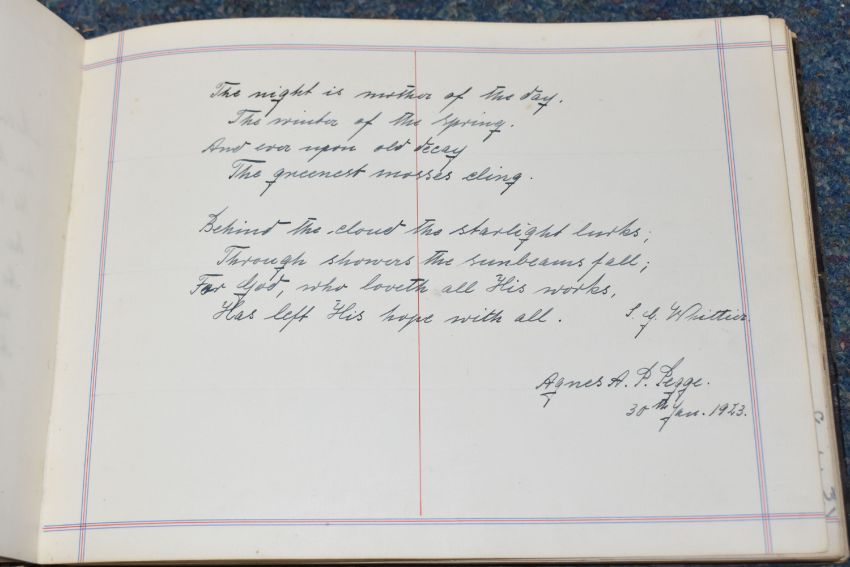 The night is mother of the day.
The winter of the spring.
And ever upon old decay
The greenest mosses cling.
Behind the cloud the starlight lurks;
Through showers the sunbeams fall;
For God, who loveth all His works,
Has left His hope with all.
J. G. Whittier.
Agnes A. P. Pegge.
30th Jan. 1923.